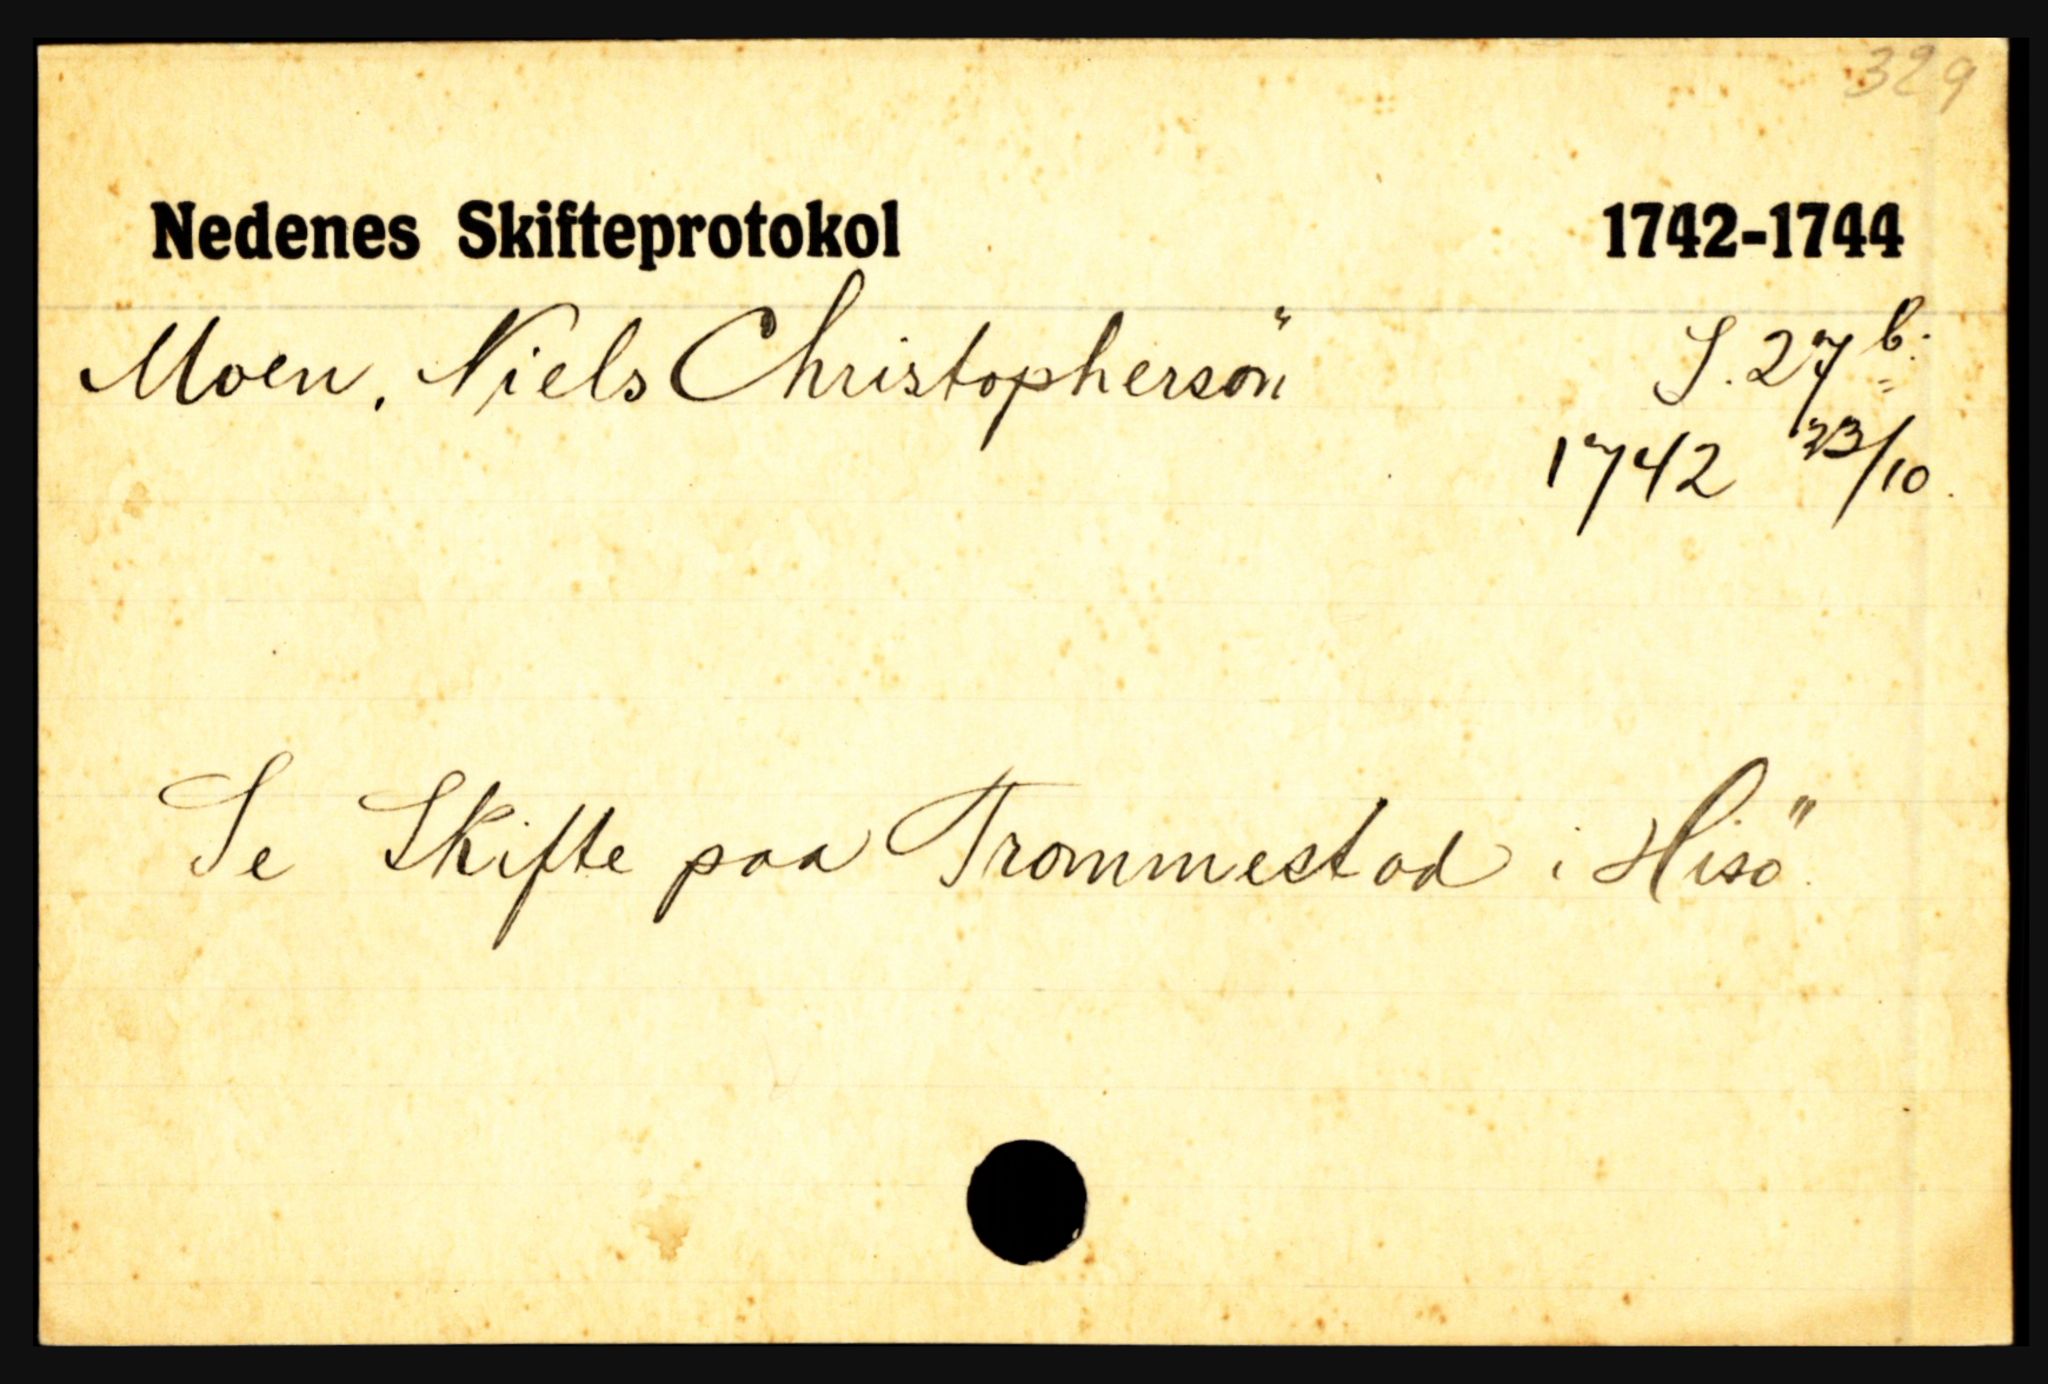 329
Nedenes Skifteprotokol 1742-1744
Moen, Niels Christophersön S. 27 b.
1742 23/10.
Se Skifte paa Trommestad i Hisö.